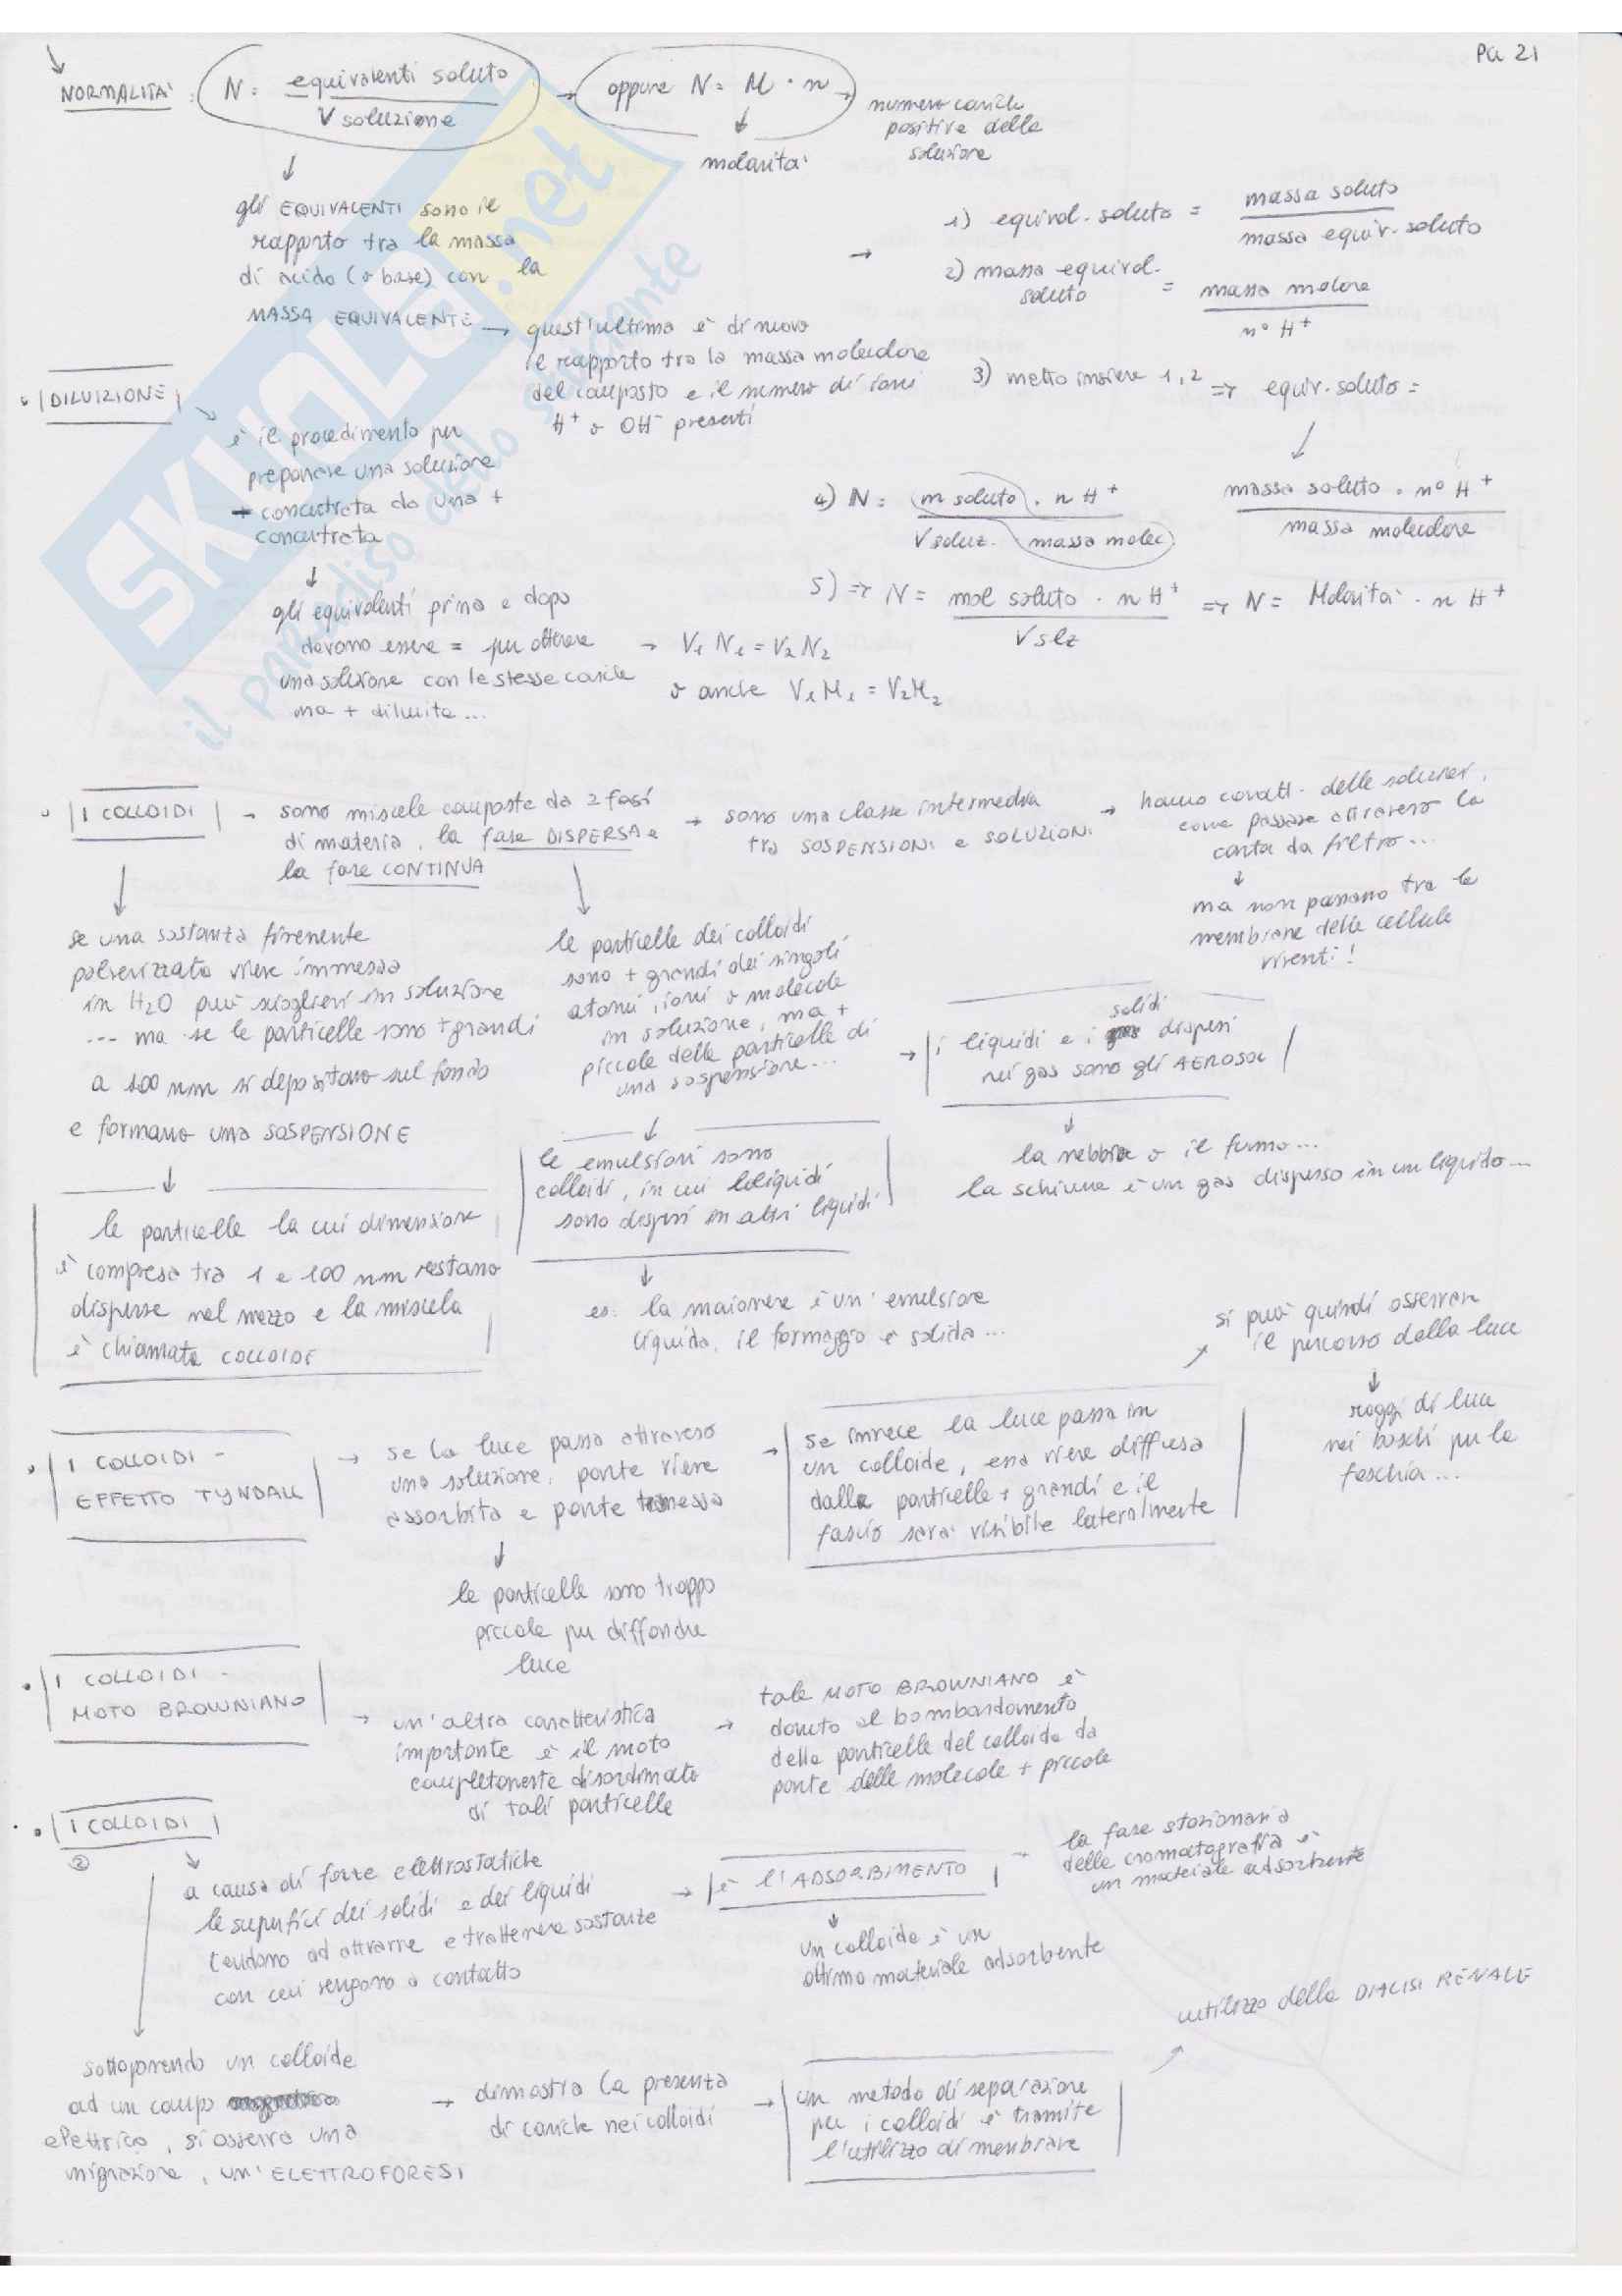 Pa 21
NORMALITA' : N = equivalenti soluto
V soluzione
→ oppure N = M · n →
numero cariche
positive della
soluzione
↓
molarita'
↓
gli EQUIVALENTI sono il
rapporto tra la massa
di acido (o base) con la
MASSA EQUIVALENTE →
quest'ultima è di nuovo
il rapporto tra la massa molecolare
del composto e il numero di ioni
H+ o OH- presenti
→
1) equival. soluto = massa soluto
massa equiv. soluto
2) massa equival.
soluto
= massa molare
n° H+
3) metto insieme 1, 2 => equiv. soluto =
massa soluto · n° H+
massa molecolare
4) N = m soluto · n H+
V soluz. massa molec.
5) => N = mol soluto · n H+ => N = Molarita' · n H+
V slz
• DILUIZIONE
è il procedimento per
preparare una soluzione
- concentrata da una +
concentrata
↓
gli equivalenti prima e dopo
devono essere = per ottenere → V1 N1 = V2 N2
una soluzione con le stesse cariche
o anche V1 M1 = V2 M2
ma + diluita ...
SKUOLA.net
il paradiso dello studente
• I COLLOIDI →
sono miscele composte da 2 fasi
di materia, la fase DISPERSA e
la fase CONTINUA
→ sono una classe intermedia
tra SOSPENSIONI e SOLUZIONI
→ hanno caratt. delle soluzioni,
come passare attraverso la
carta da filtro ...
↓
ma non passano tra le
membrane delle cellule
viventi!
↓
se una sostanza finemente
polverizzata viene immessa
in H2O può sciogliersi in soluzione
... ma se le particelle sono + grandi
a 100 nm si depositano sul fondo
e formano una SOSPENSIONE
↓
le particelle la cui dimensione
è compresa tra 1 e 100 nm restano
disperse nel mezzo e la miscela
è chiamata COLLOIDE
le particelle dei colloidi
sono + grandi dei singoli
atomi, ioni o molecole
in soluzione, ma +
piccole delle particelle di
una sospensione ...
↓
le emulsioni sono
colloidi, in cui liquidi
sono dispersi in altri liquidi
↓
es. la maionese è un'emulsione
liquida, il formaggio è solida ...
→
solidi
i liquidi e i dispersi
nei gas sono gli AEROSOL
↓
la nebbia o il fumo ...
la schiuma è un gas disperso in un liquido ...
• I COLLOIDI -
EFFETTO TYNDALL
→ se la luce passa attraverso
una soluzione, parte viene
assorbita e parte trasmessa
↓
le particelle sono troppo
piccole per diffondere
luce
→ se invece la luce passa in
un colloide, essa viene diffusa
dalle particelle + grandi e il
fascio sarà visibile lateralmente
si può quindi osservare
il percorso della luce
↓
raggi di luce
nei boschi per la
foschia ...
• I COLLOIDI -
MOTO BROWNIANO
→ un'altra caratteristica
importante è il moto
completamente disordinato
di tali particelle
→ tale MOTO BROWNIANO è
dovuto al bombardamento
delle particelle del colloide da
parte delle molecole + piccole
• I COLLOIDI
②
a causa di forze elettrostatiche
le superfici dei solidi e dei liquidi
tendono ad attrarre e trattenere sostanze
con cui vengono a contatto
→ è l'ADSORBIMENTO
→ la fase stazionaria
della cromatografia è
un materiale adsorbente
↓
un colloide è un
ottimo materiale adsorbente
sottoponendo un colloide
ad un campo
elettrico, si osserva una
migrazione, un'ELETTROFORESI
→ dimostra la presenza
di cariche nei colloidi
→ un metodo di separazione
per i colloidi è tramite
l'utilizzo di membrane
utilizzo della DIALISI RENALE